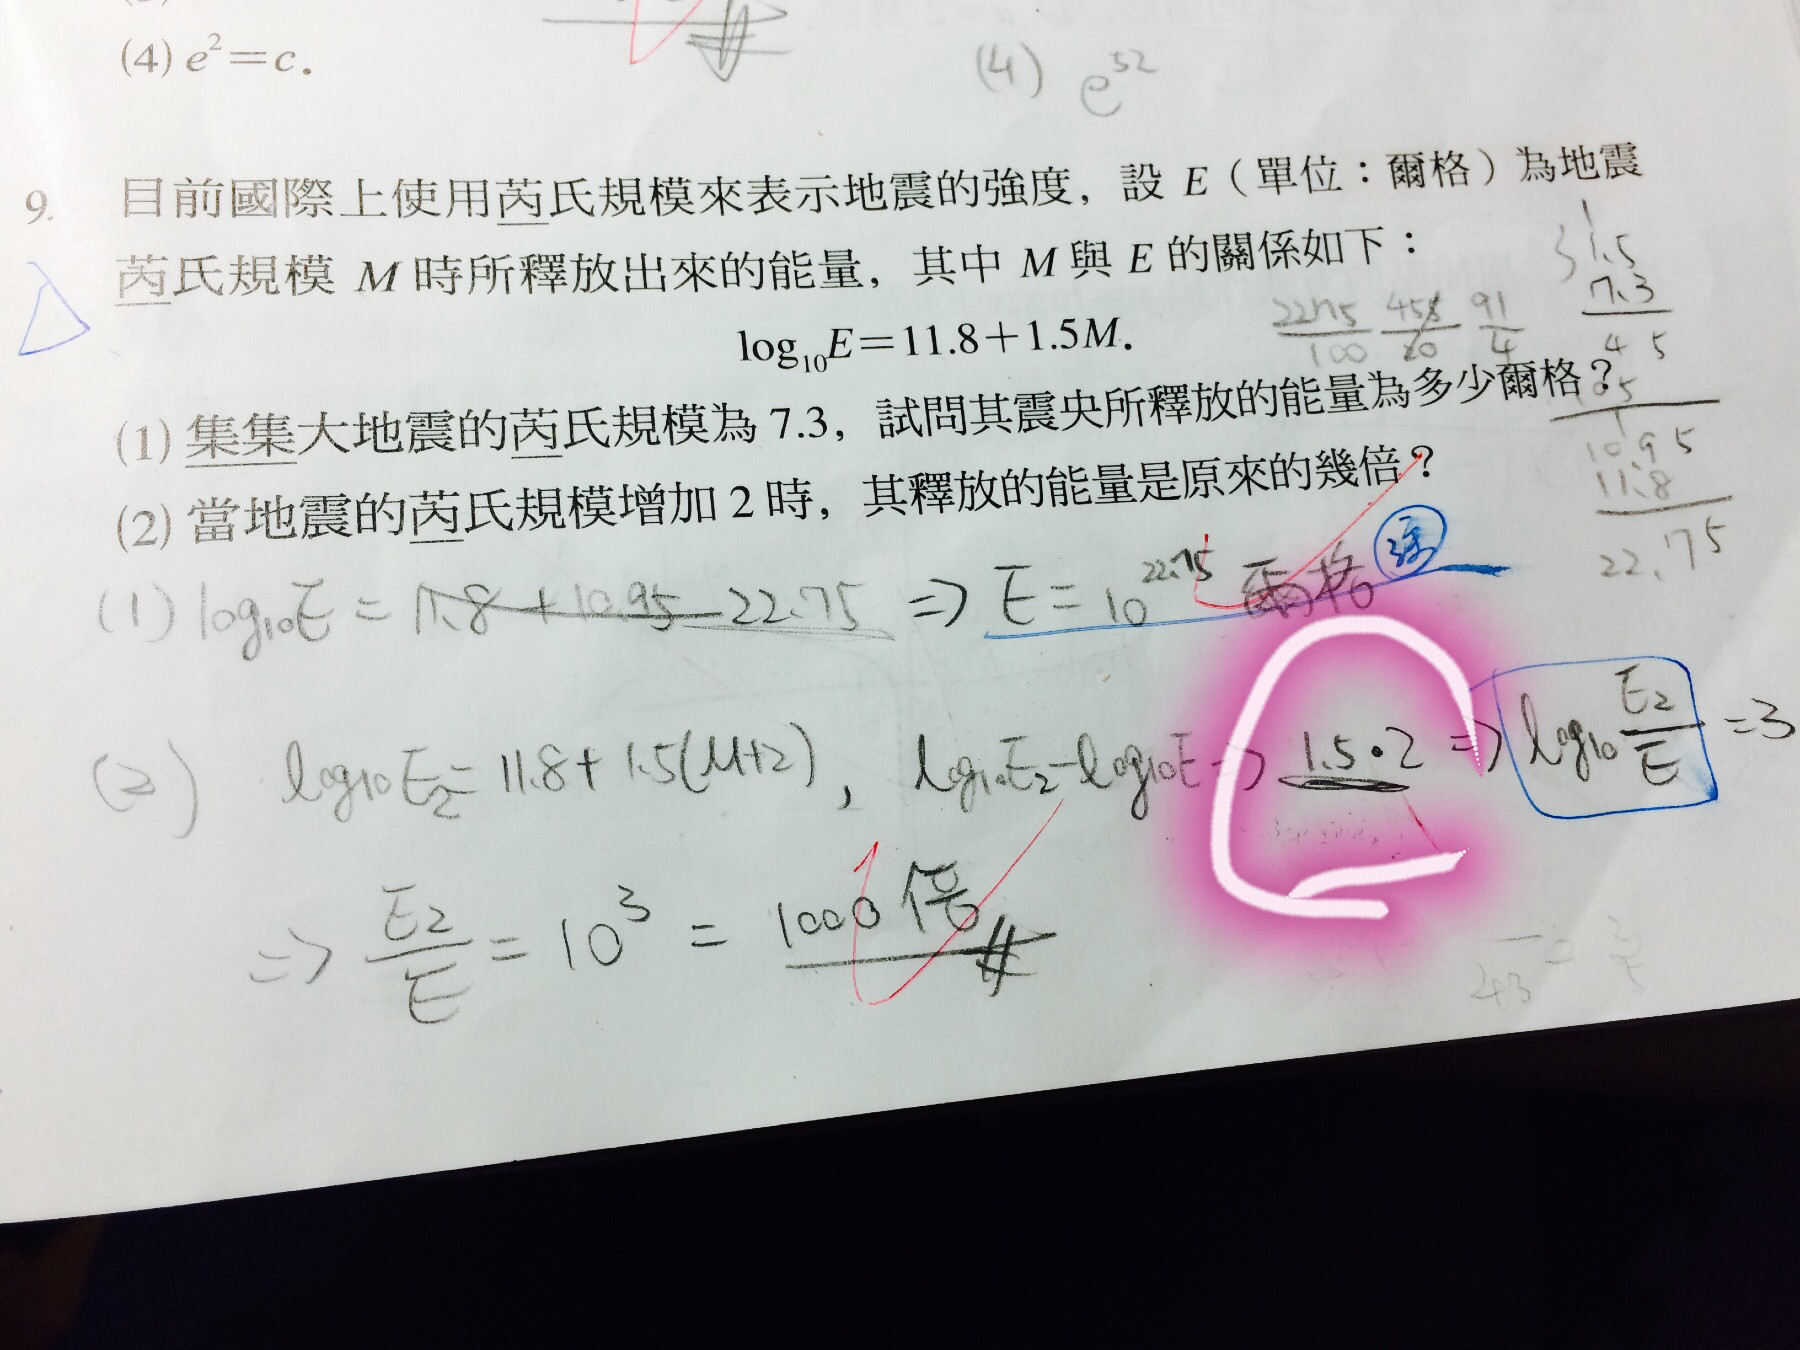 (4) e²=c.
(4) e⁵²
9. 目前國際上使用芮氏規模來表示地震的強度，設 E（單位：爾格）為地震
芮氏規模 M 時所釋放出來的能量，其中 M 與 E 的關係如下：
log₁₀E=11.8+1.5M.
(1) 集集大地震的芮氏規模為 7.3，試問其震央所釋放的能量為多少爾格？
(2) 當地震的芮氏規模增加 2 時，其釋放的能量是原來的幾倍？
1.5
7.3
45
105
10.95
11.8
22.75
2275/100 455/20 91/4
(1) log₁₀E = 11.8 + 10.95 22.75 => E = 10^22.75 爾格
(2) log₁₀E₂ = 11.8 + 1.5(M+2), log₁₀E₂-log₁₀E => 1.5•2 => log₁₀ E₂/E = 3
=> E₂/E = 10³ = 1000倍